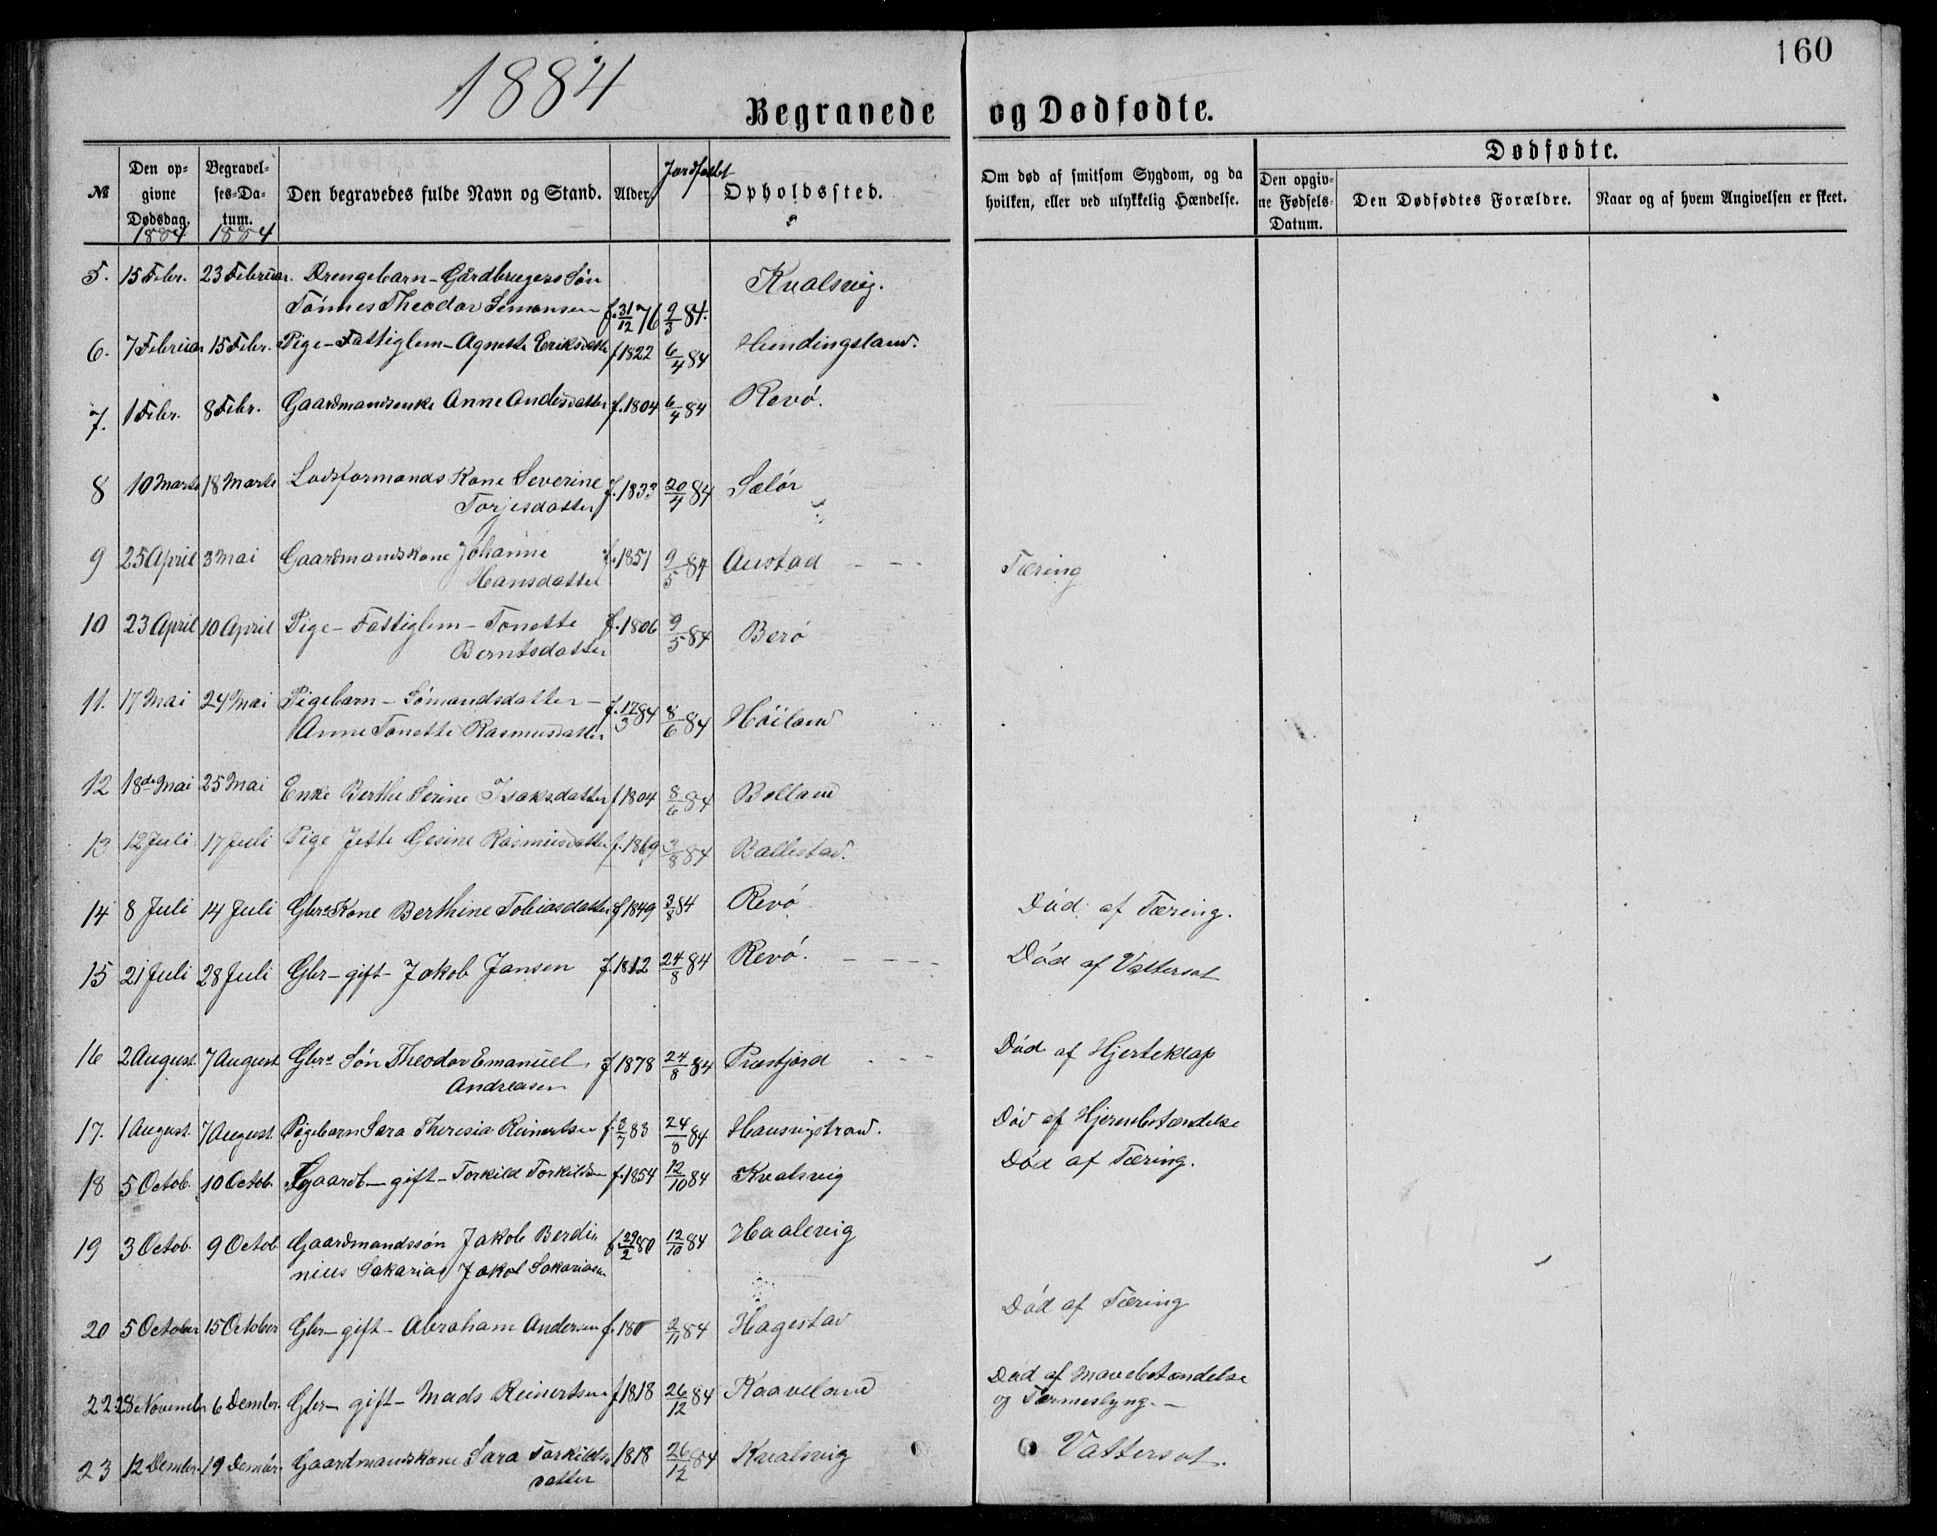 160
1884
Begravede og Dødfødte.
№ | Den opgivne Dødsdag. 1884 | Begravelses-Datum. 1884 | Den begravedes fulde Navn og Stand. | Alder. | Jordfæstet | Opholdssted. | Om død af smitsom Sygdom, og da hvilken, eller ved ulykkelig Hændelse. | Dødfødte. | Den opgivne Fødsels-Datum. | Den Dødfødtes Forældre. | Naar og af hvem Angivelsen er skeet.
5. 15 Febr. 23 Februar. Drengebarn - Gårdbrugers Søn Kvalsvig.
Tønnes Theodor Simonsen f. 31/12 76 9/3 84.
6. 7 Februar 15 Febr. Pige - Fattiglem - Agnethe Eriksdatter f 1822 6/4 84 Hundingsland.
7. 1 Febr. 8 Febr. Gaardmandsenke Anne Andersdatter f. 1804 6/4 84 Revø.
8 10 Marts 18 Marts Lodsformands Kone Severine f. 1833 20/4 84 Selør
Torjesdatter
9 25 April 3 Mai Gaardmandskone Johanne f. 1851 9/5 84 Austad Tæring
Hansdatter
10 23 April 10 April Pige - Fattiglem - Tonette f. 1806 9/5 84 Berø
Berntsdatter
11. 17 Mai 24 Mai Pigebarn - Sømandsdatter - f. 17/3 84 8/6 84 Høiland
Anne Tonette Rasmusdatter
12 18de Mai 25 Mai Enke Berthe Serine Isaksdatter f 1804 8/6 84 Bolland
13 12 Juli 17 Juli Pige Jette Gesine Rasmusdatter f. 1869 3/8 84 Ballestad.
14 8 Juli 14 Juli Gbrs Kone Berthine Tobiasdatter f 1849 3/8 84 Revø Død af Tæring.
15 21 Juli 28 Juli Gbr - gift - Jakob Jansen f. 1812 24/8 84 Revø. Død af Vattersot
16 2 August. 7 August Gbrs Søn Theodor Emanuel f 1878 24/8 84 Præstjord Død af Hjerteklap
Andreasen
17. 1 August. 7 August Pigebarn Sara Theresia Reinertsen f. 2/7 83 24/8 84 Hausvigstrand. Død af Hjernebetændelse
18 5 Octob. 10 Octob. Gaardb - gift - Torkild Torkildsen f. 1854 12/10 84 Kvalsvig Død af Tæring.
19 3 Octob. 9 Octob Gaardmandssøn Jakob Berdi- f 29/2 80 12/10 84 Haalevig
nius Sakarias Jakob Sakariasen
20 5 October 15 October Gbr - gift - Abraham Andersen f. 180 2/11 84 Hagestad Død af Tæring
22 28 November 6 Dember. Gbr - gift - Mads Reinertsen f 1818 26/12 84 Kaaveland Død af Mavebetændelse
og Tarmeslyng. -
23 12 Dember. 19 Dember. Gaardmandskone Sara Torkilds- 1818 26/12 84 Kvalsvig Vattersot.
datter